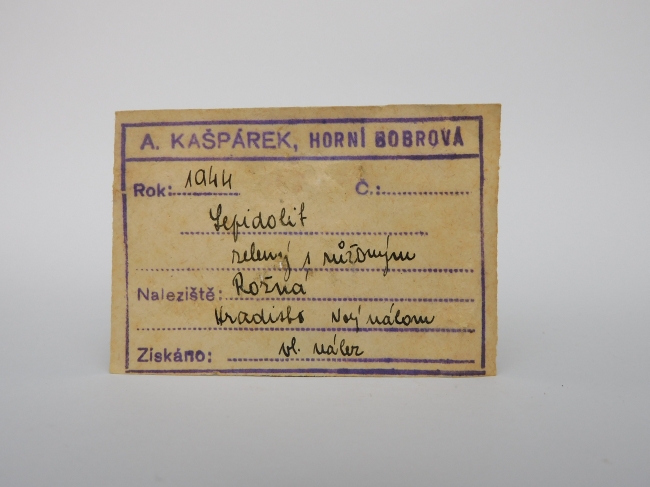 A. KAŠPÁREK, HORNÍ BOBROVÁ
Rok: 1944 Č.:
Lepidolit
zelený s růžovým
Naleziště: Rožná
Hradisko
Získáno: vl. nález